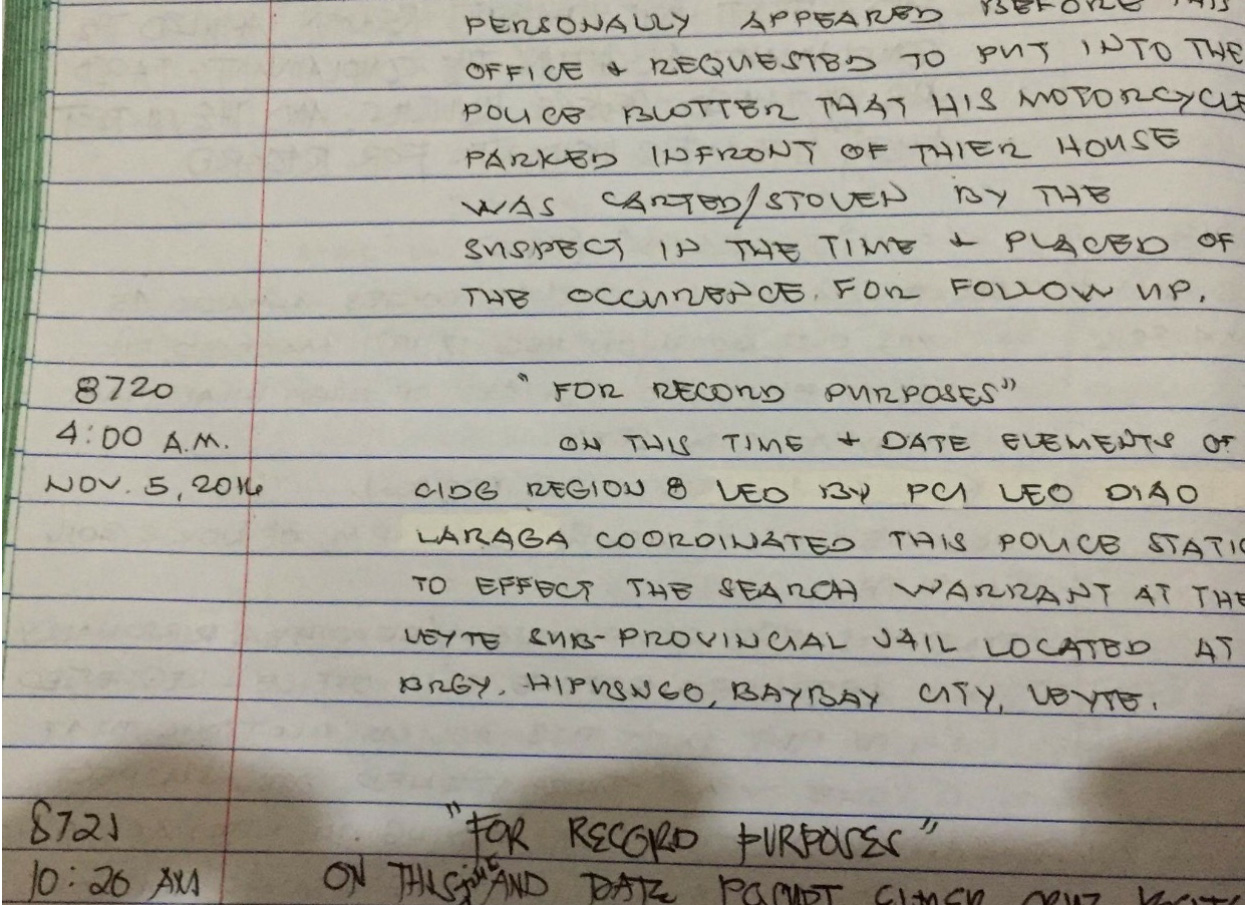 PERSONALLY APPEARED BEFORE THIS
OFFICE & REQUESTED TO PUT INTO THE
POLICE BLOTTER THAT HIS MOTORCYCLE
PARKED INFRONT OF THIER HOUSE
WAS CARTED/STOLEN BY THE
SUSPECT IN THE TIME & PLACED OF
THE OCCURENCE. FOR FOLLOW UP.
8720 "FOR RECORD PURPOSES"
4:00 A.M. ON THIS TIME & DATE ELEMENTS OF
NOV. 5, 2016 CIDG REGION 8 LED BY PCI LEO DIAO
LARAGA COORDINATED THIS POLICE STATIO
TO EFFECT THE SEARCH WARRANT AT THE
LEYTE SUB-PROVINCIAL JAIL LOCATED AT
BRGY. HIPUSNGO, BAYBAY CITY, LEYTE.
8721 "FOR RECORD PURPOSES"
10:20 AM ON THIS TIME AND DATE